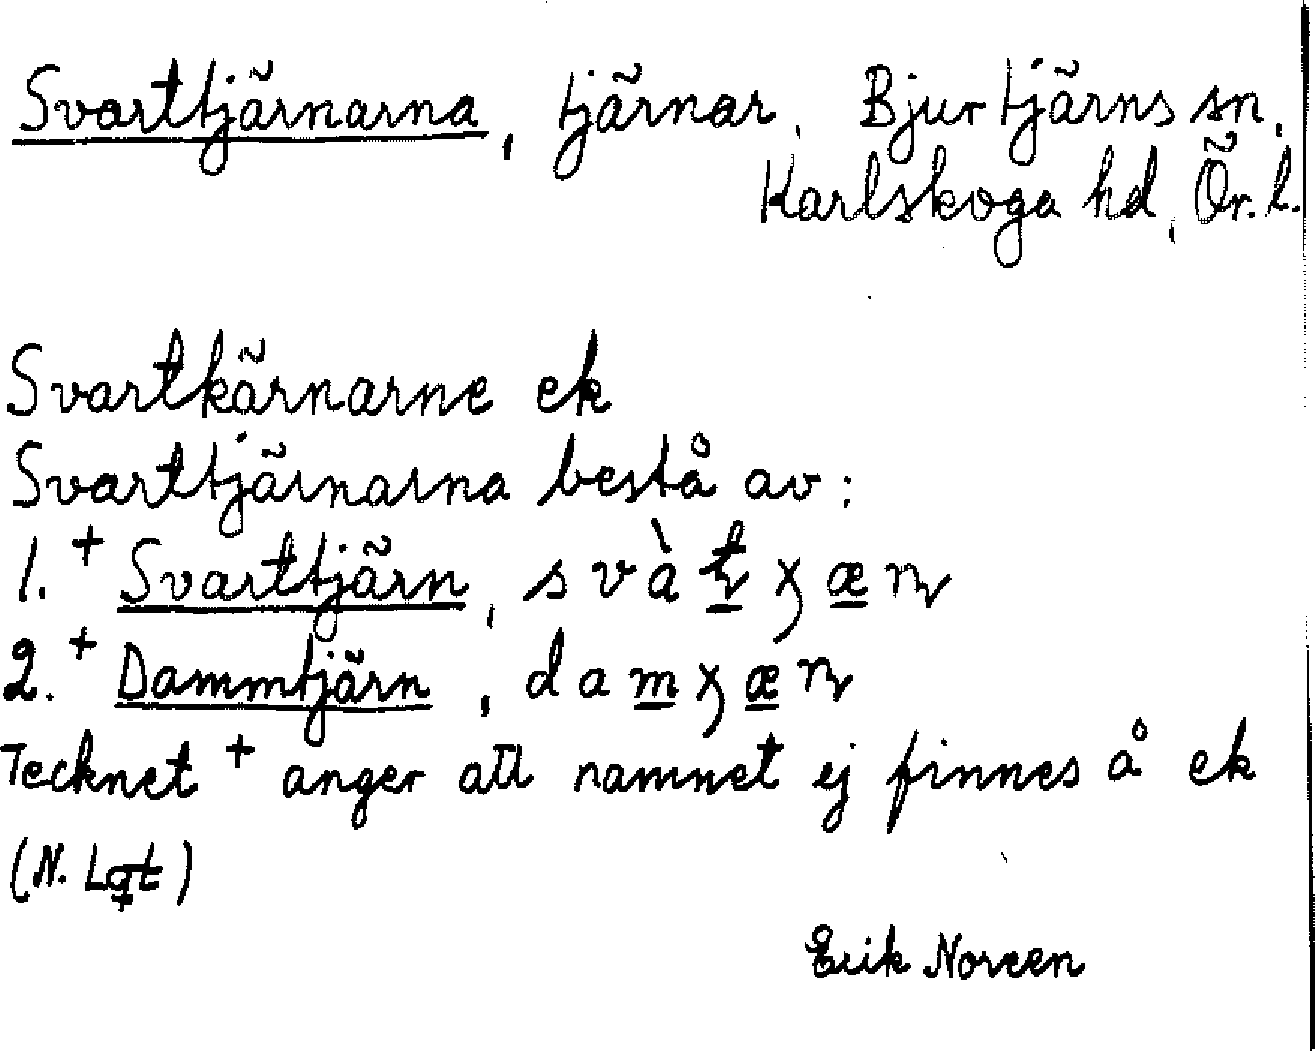 Svarttjärnarna, tjärnar, Bjurtjärns sn,
Karlskoga hd, Ör. l.
Svartkärnarne ek
Svarttjärnarna bestå av:
1. + Svarttjärn,
2. + Dammtjärn,
Tecknet + anger att namnet ej finnes å ek
(N. Lgt)
Erik Noreen